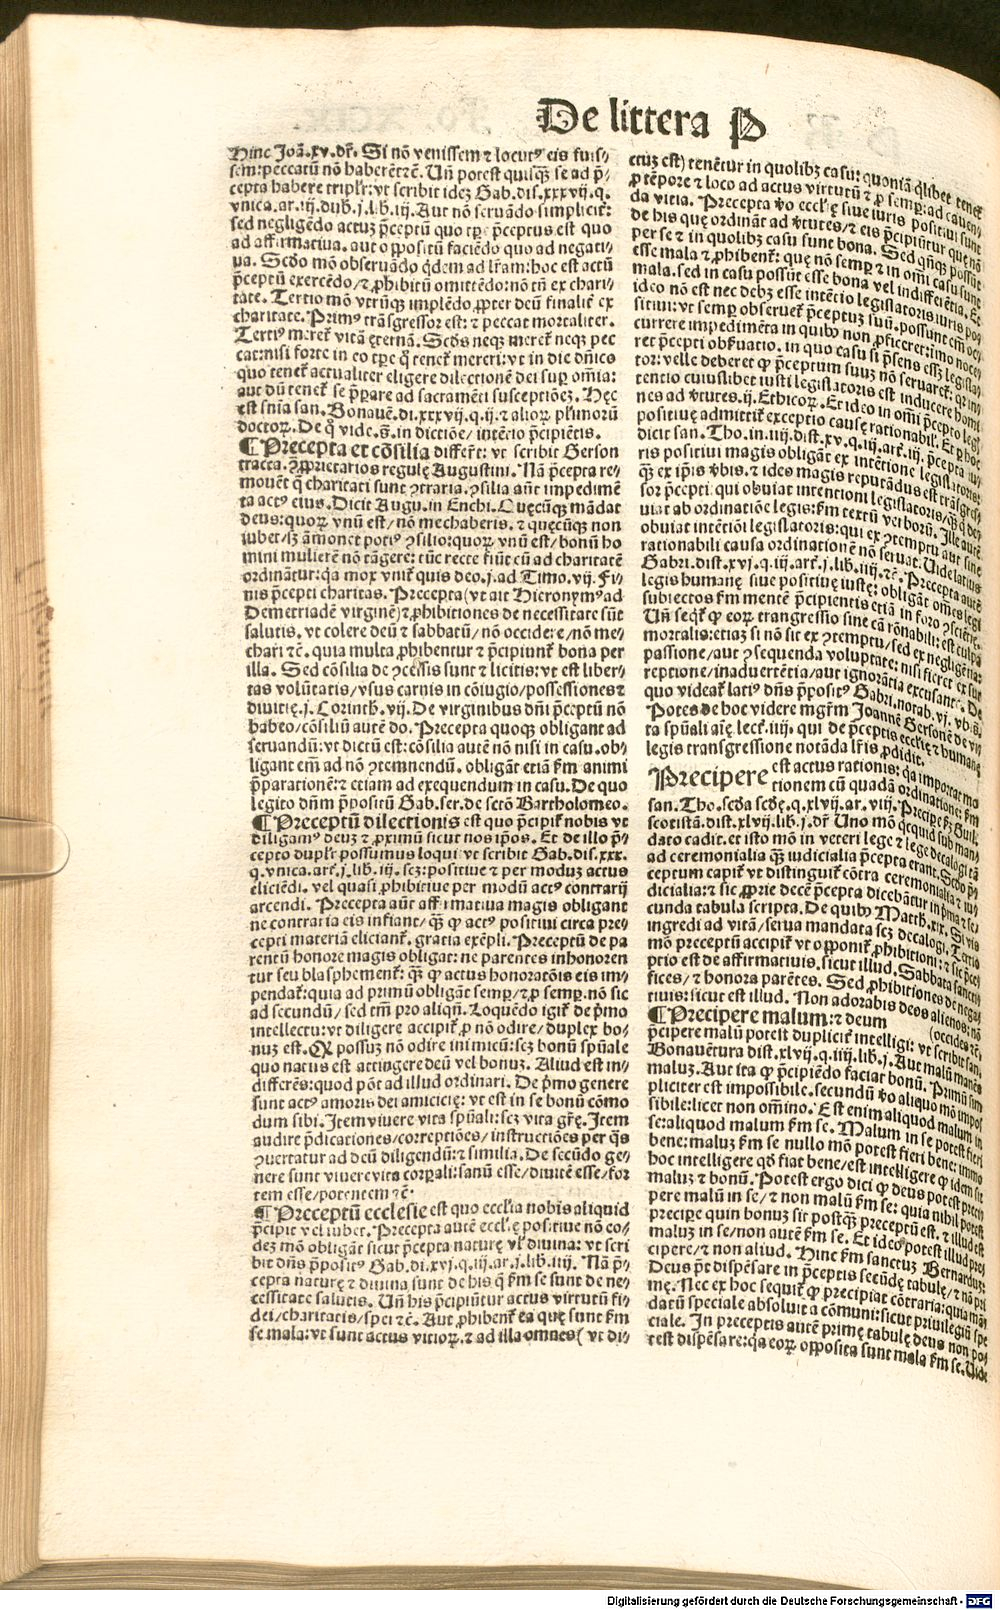 De littera P
Hinc Joã.xv.dr̃. Si nõ venissem ⁊ locutꝰ eis fuis⸗
sem:peccatũ nõ haberẽt ⁊c̃. Uñ potest quisq̃ se ad p̃⸗
cepta habere triplr̃:vt scribit idez Gab.dis.xxxvij.q.
vnica.ar.iij.dub.j.lib.iij. Aut nõ seruãdo simplicit̃:
sed negligẽdo actuz p̃ceptũ quo tp̃e p̃ceptus est quo
ad affirmatiua. aut oppositũ faciẽdo quo ad negati⸗
ua. Scd̃o mõ obseruãdo q̃dem ad lr̃am:hoc est actũ
p̃ceptũ exercẽdo/⁊ ꝓhibitũ omittẽdo:nõ tñ ex chari⸗
tate. Tertio mõ vtrũq̃ implẽdo ꝓpter deũ finalit̃ ex
charitate. Primꝰ trãsgressor est: ⁊ peccat mortaliter.
Tertiꝰ meret̃ vitã ęternã. Scd̃s neq̃ meret̃ neq̃ pec
cat:nisi forte in eo tp̃e q̃ tenet̃ mereri:vt in die dñico
quo tenet̃ actualiter eligere dilectionẽ dei suꝑ om̃ia:
aut dũ tenet̃ se p̃parare ad sacramẽti susceptiõez. Hęc
est sñia san. Bonauẽ.di.xxxvij.q.ij.⁊ alioꝝ pl̃imorũ
doctoꝝ. De q̃ vide.s̃.in dictiõe/ intẽtio p̃cipiẽtis.
¶ Precepta et cõsilia differt̃: vt scribit Gerson
tracta.ꝯ̃ ꝓprietarios regulę Augustini. Nã p̃cepta re⸗
mouẽt q̃ charitati sunt ꝯtraria. ꝯsilia añt impedimẽ
ta actꝰ eius. Dicit Augu.in Enchi. Quęcũq̃ mãdat
deus:quoꝝ vnũ est/nõ mechaberis. ⁊ quęcũq̃ non
iubet/sz̃ ãmonet potiꝰ ꝯsilio:quoꝝ vnũ est/bonũ ho
mini mulierẽ nõ tãgere: tũc recte fiũt cũ ad charitatẽ
ordinãtur:q̃a mox vnit̃ quis deo.j.ad Timo.vij. Fi⸗
nis p̃cepti charitas. Precepta(vt ait Hieronymꝰ ad
Demetriadẽ virginẽ)⁊ ꝓhibitiones de necessitate sũt
salutis. vt colere deũ ⁊ sabbatũ/nõ occidere/nõ me⸗
chari ⁊c̃. quia multa ꝓhibentur ⁊ p̃cipiunt̃ bona per
illa. Sed cõsilia de ꝯcessis sunt ⁊ licitis: vt est liber⸗
tas volũtatis/vsus carnis in cõiugio/possessiones ⁊
diuitię.j. Corinth. vij. De virginibus dñi p̃ceptũ nõ
habeo/cõsiliũ autẽ do. Precepta quoq̃ obligant ad
seruandũ: vt dictũ est:cõsilia autẽ nõ nisi in casu.ob⸗
ligant em̃ ad nõ ꝯtemnendũ. obligãt etiã ẜm animi
p̃parationẽ:⁊ etiam ad exequendum in casu. De quo
legito dñm p̃positũ Gab.ser.de sctõ Bartholomeo.
¶ Preceptũ dilectionis est quo p̃cipit̃ nobis vt
diligamꝰ deuz ⁊ ꝓximũ sicut nos ip̃os. Et de illo p̃⸗
cepto duplr̃ possumus loqui vt scribit Gab.dis.xxx.
q.vnica.art̃.j.lib.iij.scz:positiue ⁊ per moduz actus
eliciẽdi. vel quasi ꝓhibitiue per modũ actꝰ contrarij
arcendi. Precepta aũt affirmatiua magis obligant
ne contraria eis infiant/q̃ꝫ ꝙ actꝰ positiui circa pre⸗
cepti materiã eliciant̃. gratia exẽpli. Preceptũ de pa
rentũ honore magis obligat: ne parentes inhonoren
tur seu blasphement̃: q̃ꝫ ꝙ actus honoratõis eis im⸗
pendat̃:quia ad primũ obligãt semꝑ/⁊ ꝓ semꝑ.nõ sic
ad secundũ/ sed tm̃ pro aliqñ. Loquẽdo igit̃ de p̃mo
intellectu:vt diligere accipit̃ ꝓ nõ odire/duplex bo⸗
nuz est. Q̃ possuz nõ odire inimicũ:scz bonũ spũale
quo natus est attingere deũ vel bonuz. Aliud est in⸗
differẽs:quod põt ad illud ordinari. De p̃mo genere
sunt actꝰ amoris dei amicicię: vt est in se bonũ cõmo
dum sibi. Item viuere vita spũali:scz vita gr̃ę. Item
audire p̃dicationes/correptiões/instructiões per q̃s
ꝯuertatur ad deũ diligendũ:⁊ similia. De secũdo ge⸗
nere sunt viuere vita corꝑali:sanũ esse/diuitẽ esse/for
tem esse/potentem ⁊c̃.
¶ Preceptũ ecclesie est quo eccl̃ia nobis aliquid
p̃cipit vel iubet. Precepta autẽ eccl̃ę positiue nõ eo⸗
dez mõ obligãt sicut p̃cepta naturę vl̃ diuina: vt scri
bit dñs p̃positꝰ Gab.di.xvj.q.iij.ar.j.lib.iiij. Nã p̃⸗
cepta naturę ⁊ diuina sunt de his q̃ ẜm se sunt de ne⸗
cessitate salutis. Uñ his p̃cipiũtur actus virtutũ fi⸗
dei/charitatis/spei ⁊c̃. Aut ꝓhibent̃ ea quę sunt ẜm
se mala:vt sunt actus vitioꝝ.⁊ ad illa omnes(vt di⸗
ctuz est) tenẽtur in quolibꝫ casu: quoniã q̃libet tenet̃
ꝓ tẽpore ⁊ loco ad actus virtutũ ⁊ ꝓ semꝑ: ad cauen⸗
da vitia. Precepta ṽo eccl̃ię siue iuris positiui sunt
de his quę ordinãt ad ṽtutes/⁊ eis p̃cipiũtur quę nõ
per se ⁊ in quolibꝫ casu sunt bona. Sed qñq̃ possũt
esse mala ⁊ ꝓhibent̃: quę nõ semꝑ ⁊ in om̃i casu sunt
mala.sed in casu possũt esse bona vel indifferẽtia. Et
ideo nõ est nec debꝫ esse intẽtio legislatoris iuris po⸗
sitiui: vt semꝑ obseruet̃ p̃ceptuz suũ. possunt em̃ oc⸗
currere impedimẽta in quibꝰ non ꝓficeret:imo noce⸗
ret p̃cepti obẜuatio. in quo casu si p̃sens essꝫ legisla⸗
tor: velle deberet ꝙ p̃ceptum suuz nõ seruaret̃: qr̃ in⸗
tentio cuiuslibet iusti legislatoris est inducere homi
nes ad ṽtutes.ij. Ethicoꝝ. Et ideo in om̃i p̃cepto legis
positiuę admittit̃ exceptio causę rationabil̃. Et ꝓ hoc
dicit san. Tho.in.iiij.dist.xv.q.iij.art̃.iij. p̃cepta iu⸗
ris positiui magis obligãt ex intẽtione legislatoris:
q̃ꝫ ex ip̃is ṽbis. ⁊ ides magis reputãdus est trãsgres⸗
sor p̃cepti: qui obuiat intentioni legislatoris/q̃ꝫ q̃ de⸗
uiat ab ordinatiõe legis: ẜm textũ verborũ. Ille autẽ
obuiat intẽtiõi legislatoris: qui ex ꝯtemptu aut sine
rationabili causa ordinationẽ nõ seruat. Uide latius
Gabri.dist.xvj.q.iij.art̃.j.lib.iiij.⁊c̃. Precepta autẽ
legis humanę siue positiuę iustę: obligãt om̃es legi
subiectos ẜm mentẽ p̃cipientis etiã in foro ꝯsciẽtię.
Uñ seqt̃ ꝙ eoꝝ trangressio sine cã rõnabili: est culpa
mortalis:etiaz si nõ sit ex ꝯtemptu/sed ex negligẽtia:
passione/aut ꝯsequenda voluptate: nisi fieret ex sur
reptione/inaduertẽtia/aut ignorãtia excusante. De
quo videat̃ latiꝰ dñs p̃positꝰ Gabri.norab.vj. vbi.s̃.
Potes de hoc videre mgr̃m Joannẽ Gersonẽ de vi⸗
ta spũali aĩę.lect̃.iiij. qui de p̃ceptis eccl̃ię ⁊ humanę
legis transgressione notãda lr̃is ꝓdidit.
Precipere est actus rationis: q̃a importat mo
tionem cũ quadã ordinatione: ẜm
san. Tho. scd̃a scd̃ę.q.xlvij.ar.viij. Precipe ẜꝫ Guil.
scotistã.dist.xlvij.lib.j.dr̃. Uno mõ qcquid sub man⸗
dato cadit.et isto mõ in veteri lege ⁊ lege decalogi tã
ad ceremonialia q̃ꝫ iudicialia p̃cepta erant. Scd̃o p̃⸗
ceptum capit̃ vt distinguit̃ cõtra ceremonialia ⁊ iu⸗
dicialia:⁊ sic ꝓprie decẽ p̃cepta dicebãtur in p̃ma ⁊ se⸗
cunda tabula scripta. De quibꝰ Matth.xix. Si vis
ingredi ad vitã/serua mandata scz decalogi. Tertio
mõ preceptũ accipit̃ vt opponit̃ ꝓhibitioni: ⁊ sic p̃ce⸗
ptio est de affirmatiuis.sicut illud. Sabbata sancti⸗
fices/⁊ honora parẽtes. Sed ꝓhibitiones de nega⸗
tiuis:sicut est illud. Non adorabis deos alienos: nõ
¶ Precipere malum: ⁊ deum (occides ⁊c̃.
p̃cipere malũ potest duplicit̃ intelligi: vt scribit san.
Bonauẽtura dist.xlvij.q.iiij.lib.j. Aut malũ manẽs
maluz. Aut ita ꝙ p̃cipiẽdo faciat bonũ. Primũ sim
pliciter est impossibile.secundũ ṽo aliquo mõ impos
sibile:licet non om̃ino. Est enim aliquod malum in
se:aliquod malum ẜm se. Malum in se potest fieri
bene:maluz ẜm se nullo mõ potest fieri bene: immo
hoc intelligere qd̃ fiat bene/est intelligere ꝙ idem sit
maluz ⁊ bonũ. Potest ergo dici ꝙ deus potest preci⸗
pere malũ in se/⁊ non malũ ẜm se: quia nihil potest
precipe quin bonuz sit postq̃ꝫ preceptũ est. ⁊ illud est
maluz in se/non autẽ ẜm se. Et ideo potest illud pre⸗
cipere/⁊ non aliud. Hinc ẜm sanctuz Bernarduz:
Deus p̃t dispẽsare in p̃ceptis secũdę tabulę/⁊ nã pri
mę. Nec ex hoc sequit̃ ꝙ precipiat cõtraria: quia mã⸗
datũ speciale absoluit a cõmuni:sicut priuilegiũ spe
ciale. In preceptis autẽ primę tabulę deus non po⸗
test dispẽsare:q̃a eoꝝ opposita sunt mala ẜm se. Uide
Digitalisierung gefördert durch die Deutsche Forschungsgemeinschaft - DFG